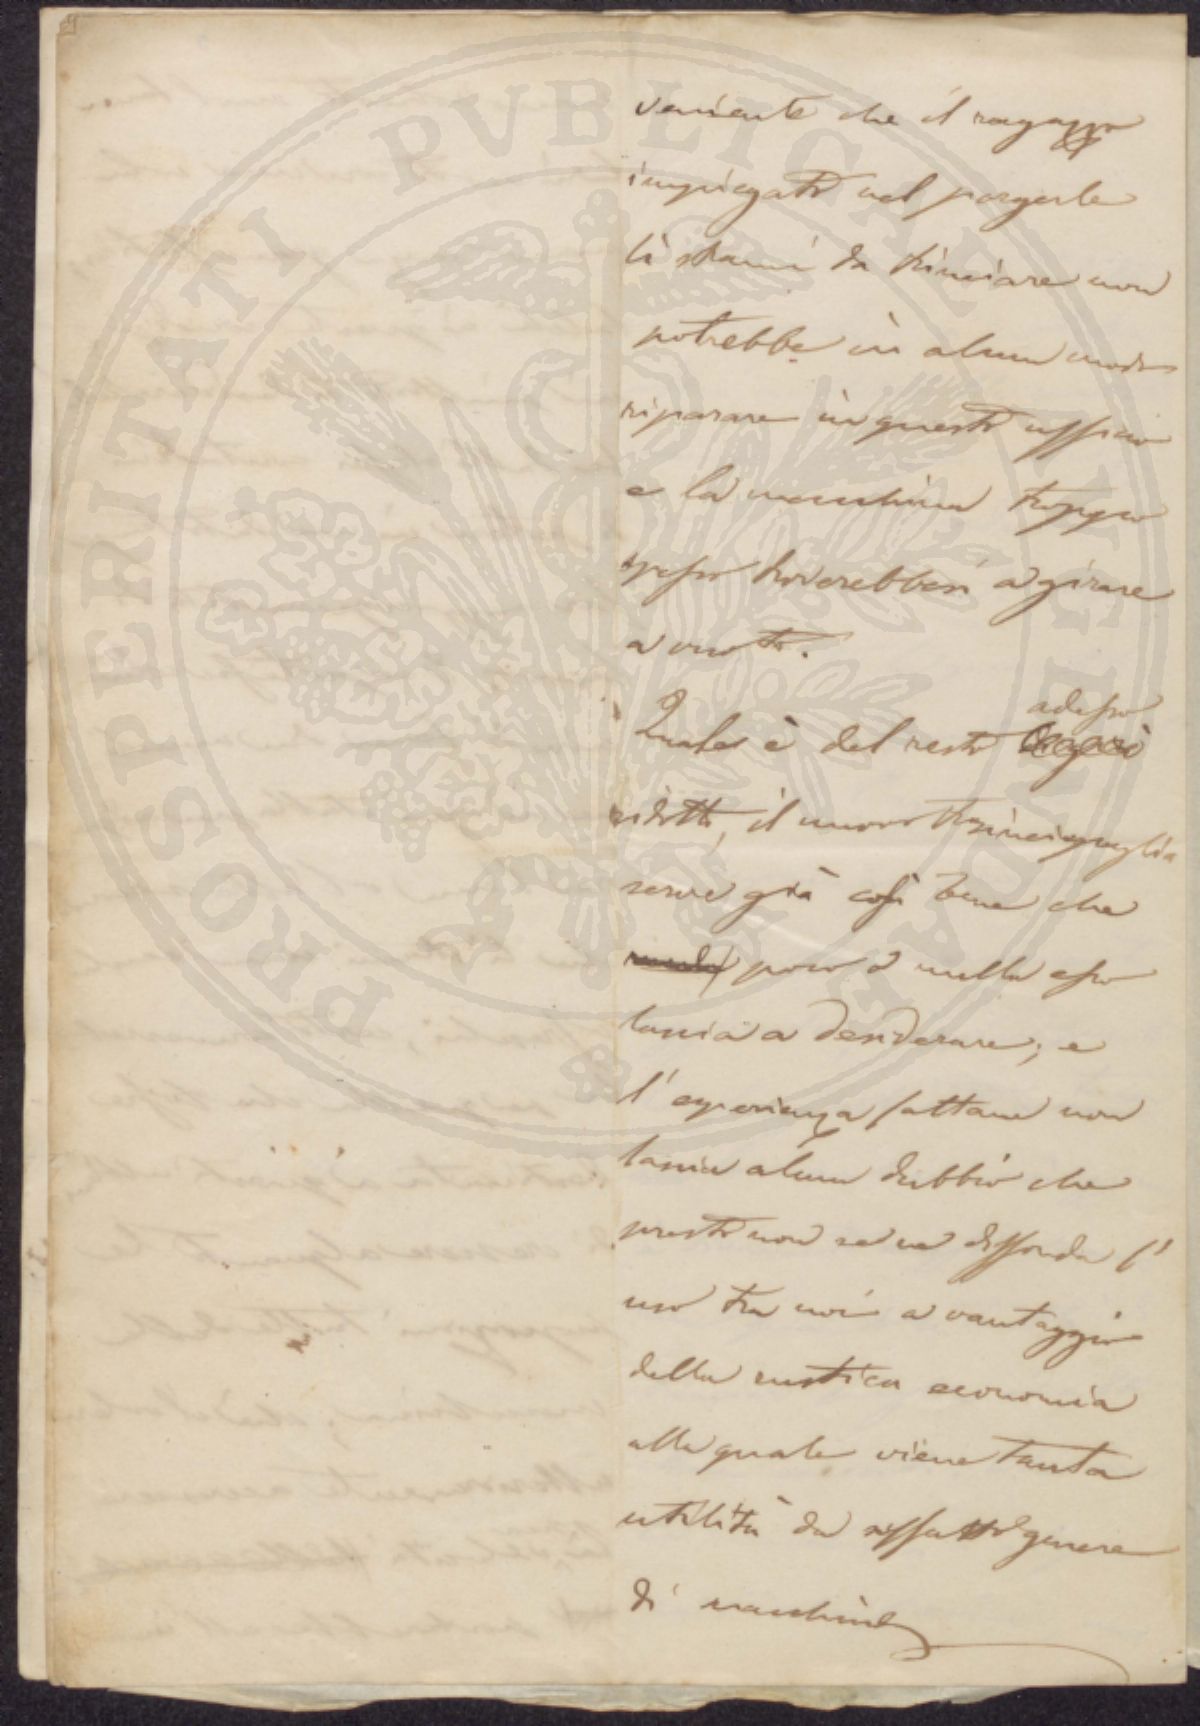 veniente che il ragazzo
impiegato nel porgerle
li strami da trinciare non
potrebbe in alcun modo
riparare in questo ufficio
e la macchina troppo
spesso troverebbesi a girare
a vuoto.
adesso
Quale è del resto
ridotto, il nuovo trinciapaglia
serve già così bene che
poco o nulla esso
lascia a desiderare; e
l'esperienza fattane non
lascia alcun dubbio che
presto non se ne diffonda l'
uso tra noi a vantaggio
della rustica economia
alla quale viene tanta
utilità da siffatto genere
di macchine
PROSPERITATI PVBLICAE AVGENDAE